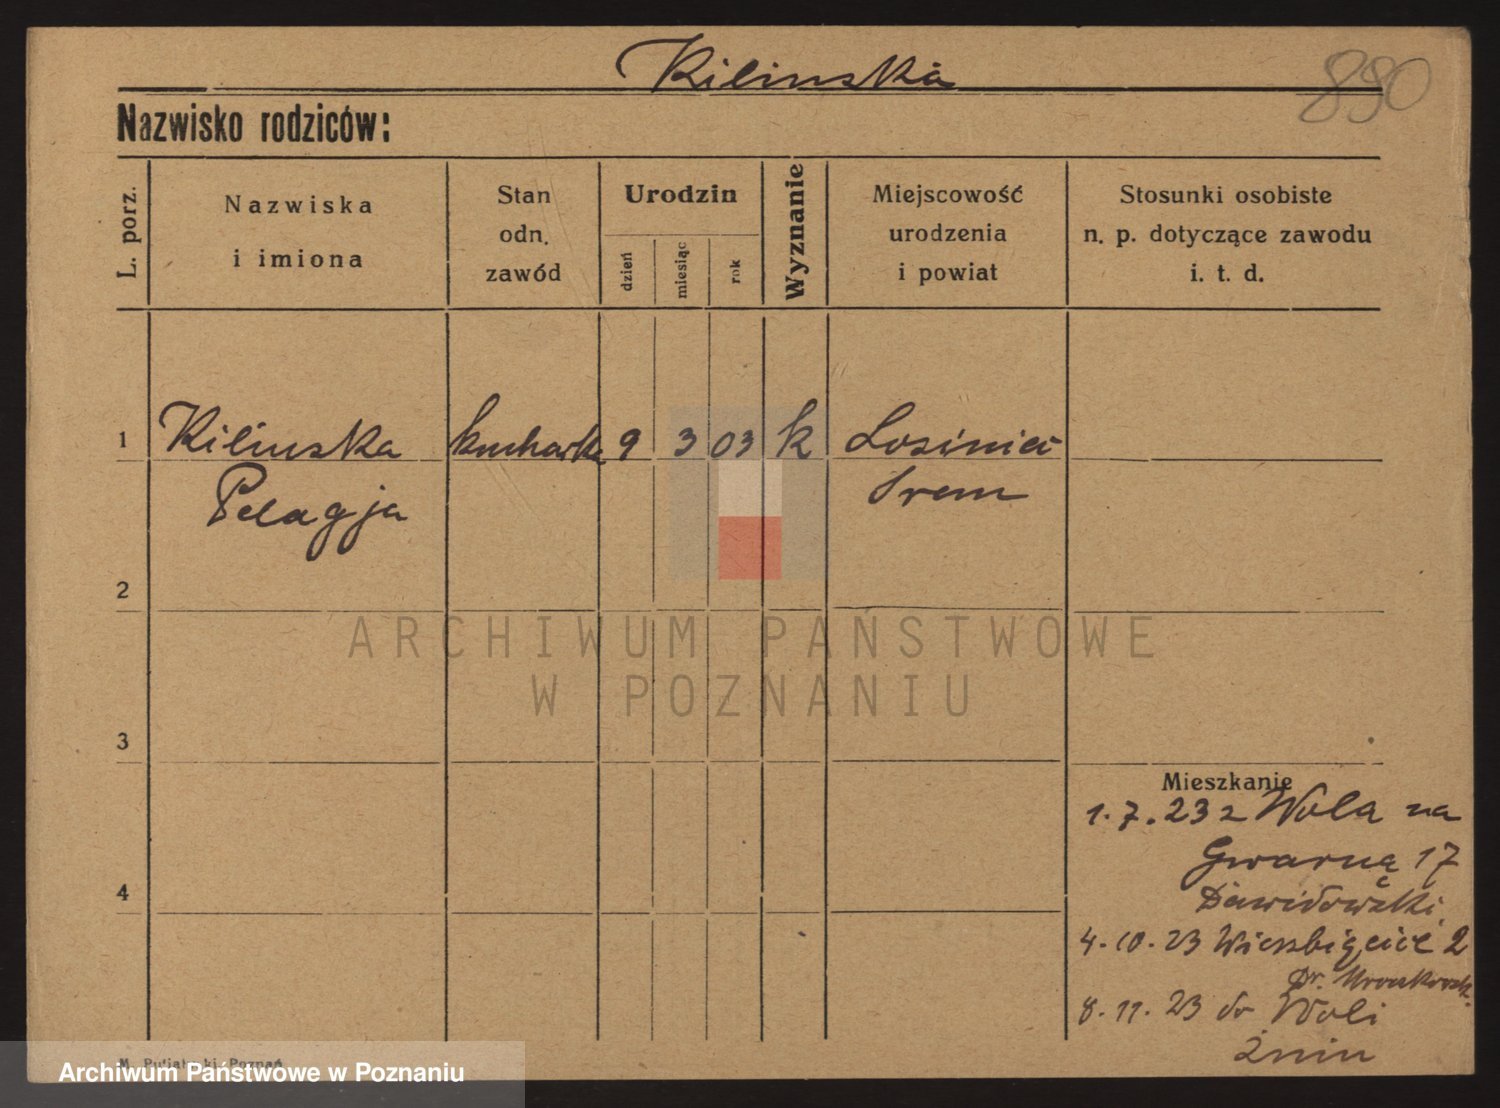 Kilinska
890
Nazwisko rodziców:
L. porz.
Nazwiska
i imiona
Stan
odn.
zawód
Urodzin
dzień
miesiąc
rok
Wyznanie
Miejscowość
urodzenia
i powiat
Stosunki osobiste
n. p. dotyczące zawodu
i. t. d.
1 Kilinska kucharka 9 3 03 k Losiniec
Pelagja Srem
2
ARCHIWUM PAŃSTWOWE
W POZNANIU
3
Mieszkanie
1.7.23 z Wola na
Gwarną 17
4
Dawidowski
4.10.23 Wierzbięcice 2
Dr.
8.11.23 do Woli
Żnin
M. Putiatycki, Poznań
Archiwum Państwowe w Poznaniu